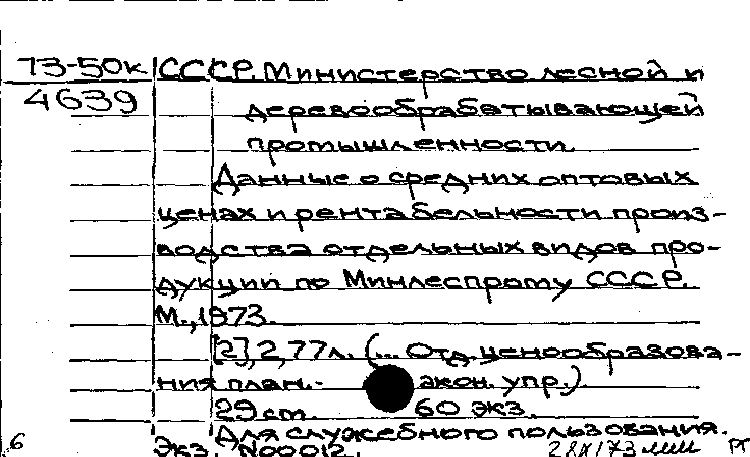 73-50к СССР. Министерство лесной и
4639 деревообрабатывающей
промышленности.
Данные о средних оптовых
ценах и рентабельности произ-
водства отдельных видов про-
дукции по Минлеспрому СССР.
М., 1973.
[2], 2, 77л. (... Отд. ценообразова-
ния план.- экон. упр.)
29 cm. 60 экз.
Для служебного пользования.
6 Экз. N00012.